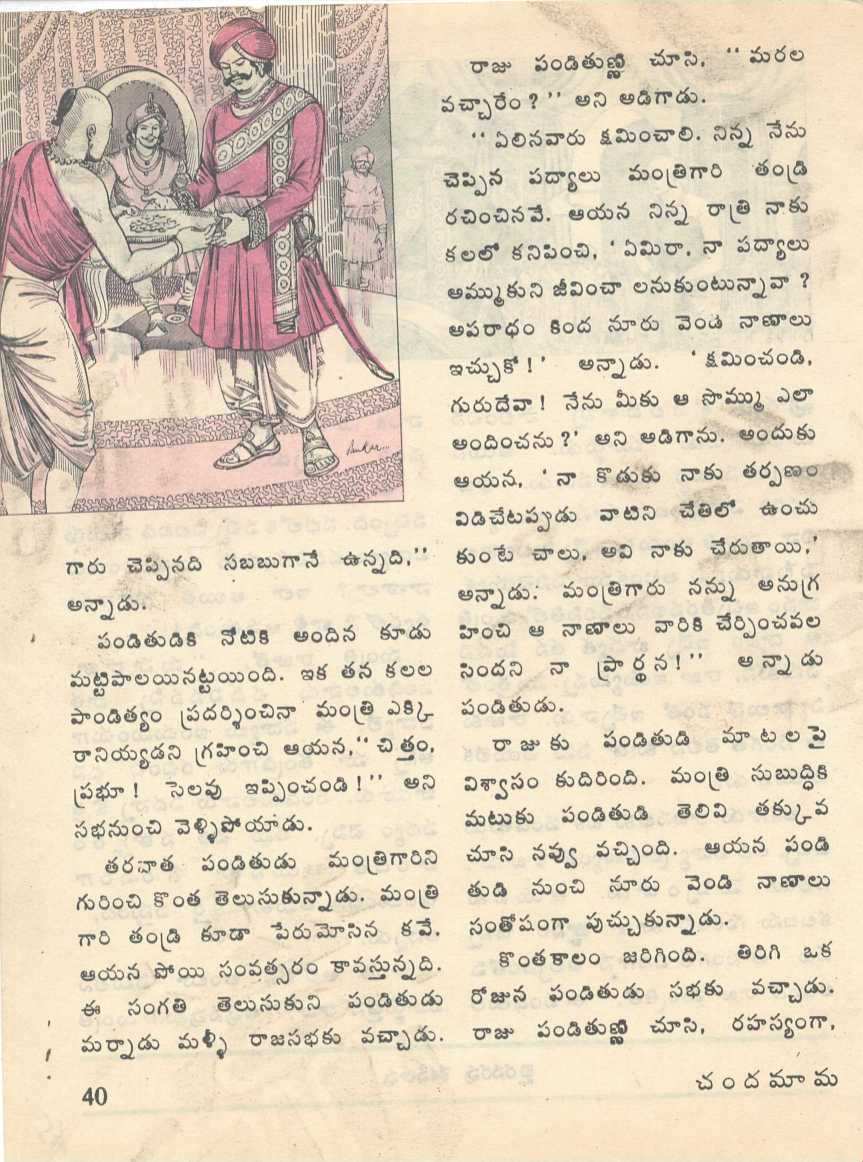 గారు చెప్పినది సబబుగానే ఉన్నది,''
అన్నాడు.
పండితుడికి నోటికి అందిన కూడు
మట్టిపాలయినట్టయింది. ఇక తన కలల
పాండిత్యం ప్రదర్శించినా మంత్రి ఎక్కి
రానియ్యడని గ్రహించి ఆయన,'' చిత్తం,
ప్రభూ! సెలవు ఇప్పించండి!'' అని
సభనుంచి వెళ్ళిపోయాడు.
తరవాత పండితుడు మంత్రిగారిని
గురించి కొంత తెలుసుకున్నాడు. మంత్రి
గారి తండ్రి కూడా పేరుమోసిన కవే.
ఆయన పోయి సంవత్సరం కావస్తున్నది.
ఈ సంగతి తెలుసుకుని పండితుడు
మర్నాడు మళ్ళీ రాజసభకు వచ్చాడు.
రాజు పండితుణ్ణి చూసి, ''మరల
వచ్చారేం?'' అని అడిగాడు.
''ఏలినవారు క్షమించాలి. నిన్న నేను
చెప్పిన పద్యాలు మంత్రిగారి తండ్రి
రచించినవే. ఆయన నిన్న రాత్రి నాకు
కలలో కనిపించి, 'ఏమిరా, నా పద్యాలు
అమ్ముకుని జీవించా లనుకుంటున్నావా?
అపరాధం కింద నూరు వెండి నాణాలు
ఇచ్చుకో!' అన్నాడు. 'క్షమించండి,
గురుదేవా! నేను మీకు ఆ సొమ్ము ఎలా
అందించను?' అని అడిగాను. అందుకు
ఆయన, 'నా కొడుకు నాకు తర్పణం
విడిచేటప్పుడు వాటిని చేతిలో ఉంచు
కుంటే చాలు, అవి నాకు చేరుతాయి,'
అన్నాడు. మంత్రిగారు నన్ను అనుగ్ర
హించి ఆ నాణాలు వారికి చేర్పించవల
సిందని నా ప్రార్థన!'' అన్నాడు
పండితుడు.
రాజుకు పండితుడి మాటలపై
విశ్వాసం కుదిరింది. మంత్రి సుబుద్ధికి
మటుకు పండితుడి తెలివి తక్కువ
చూసి నవ్వు వచ్చింది. ఆయన పండి
తుడి నుంచి నూరు వెండి నాణాలు
సంతోషంగా పుచ్చుకున్నాడు.
కొంతకాలం జరిగింది. తిరిగి ఒక
రోజున పండితుడు సభకు వచ్చాడు.
రాజు పండితుణ్ణి చూసి, రహస్యంగా,
40
చందమామ